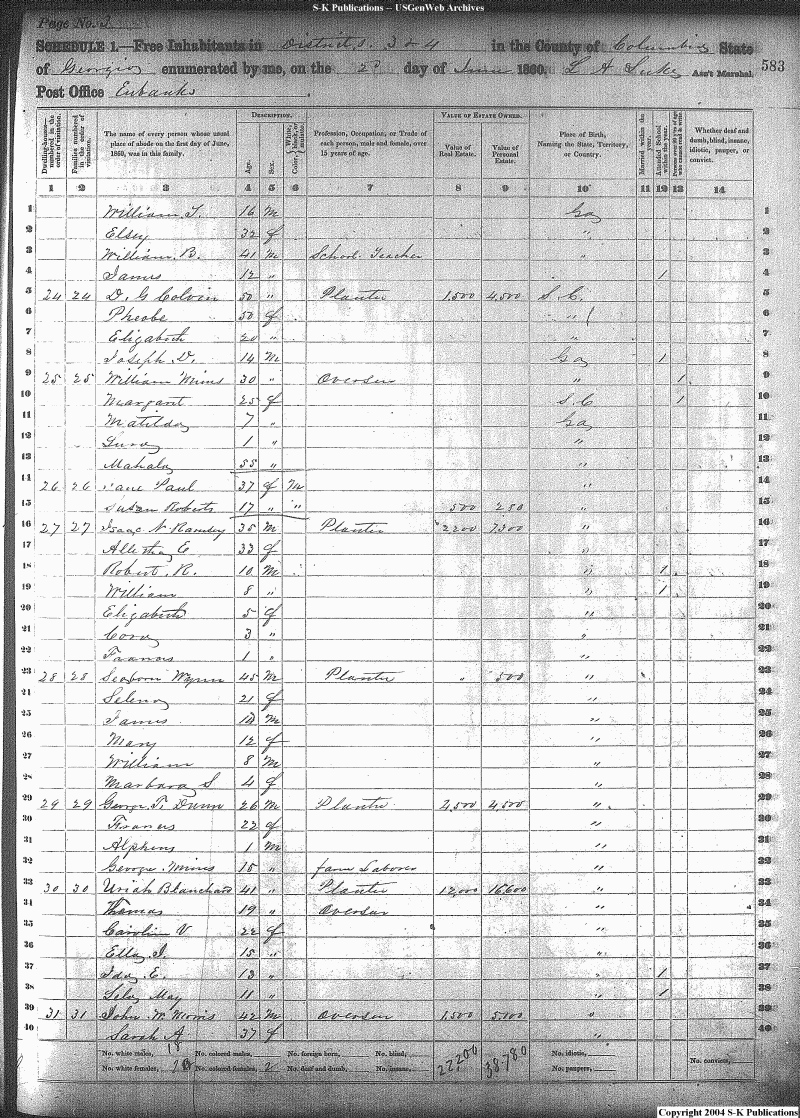 S-K Publications – USGenWeb Archives
Page No. 3
SCHEDULE 1.—Free Inhabitants in Districts 3 & 4 in the County of Columbia State
of Georgia enumerated by me, on the 2d day of June 1860. L A Luke Ass't Marshal. 583
Post Office Eubanks
DESCRIPTION. VALUE OF ESTATE OWNED.
Dwelling-houses—numbered in the order of visitation. Families numbered in the order of visitation. The name of every person whose usual place of abode on the first day of June, 1860, was in this family. Age. Sex. Color, White, black, or mulatto. Profession, Occupation, or Trade of each person, male and female, over 15 years of age. Value of Real Estate. Value of Personal Estate. Place of Birth, Naming the State, Territory, or Country. Married within the year. Attended School within the year. Persons over 20 y'rs of age who cannot read & write. Whether deaf and dumb, blind, insane, idiotic, pauper, or convict.
1 2 3 4 5 6 7 8 9 10 11 12 13 14
1 William T. 16 M Ga 1
2 Elsey 32 f " 2
3 William B. 41 M School Teacher " 3
4 James 12 " 1 4
5 24 24 D. G Colvin 50 " Planter 1,500 4,500 S. C. 5
6 Pheobe 50 f " 6
7 Elizabeth 20 " " 7
8 Joseph D. 14 M Ga 1 8
9 25 25 William Mims 30 " Overseer " 1 9
10 Margaret 25 f S. C 1 10
11 Matilda 7 " Ga 11
12 1 " " 12
13 Mahala 55 " " 13
14 26 26 Jane Paul 37 f M " 14
15 Susan Roberts 17 " " 500 250 " 15
16 27 27 Isaac N. Ramsey 35 M Planter 2200 7300 " 16
17 E 33 f " 17
18 Robert R. 10 M " 1 18
19 William 8 " " 1 19
20 Elizabeth 5 f " 20
21 Cora 3 " " 21
22 Francis 1 " " 22
23 28 28 Seaborn Wynn 45 M Planter " 500 " 23
24 Selena 21 f " 24
25 James M " 25
26 Mary 12 f " 26
27 William 8 M " 27
28 Marbara S 4 f " 28
29 29 29 George T. Dunn 26 M Planter 2,500 4,500 " 29
30 Frances 22 f " 30
31 Alpheus 1 M " 31
32 George Mims 15 " farm Laborer " 32
33 30 30 Uriah Blanchard 41 " Planter 12,000 16600 " 33
34 Thomas 19 " Overseer " 34
35 Carolin V 22 f " 35
36 Ella J. 15 " " 36
37 Ida E. 13 " " 1 37
38 Lela May 11 " " 1 38
39 31 31 John W Morris 42 M Overseer 1,500 5,100 " 39
40 Sarah A 37 f " 40
No. white males, 18 No. colored males, No. foreign born, No. blind, 22,200 38,780 No. idiotic, No. convicts,
No. white females, 20 No. colored females, 2 No. deaf and dumb, No. insane, No. paupers,
Copyright 2004 S-K Publications